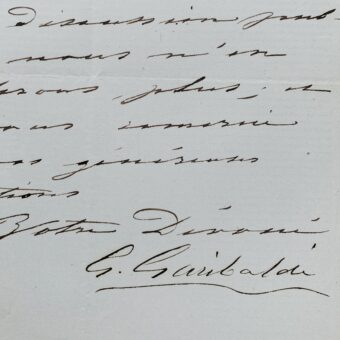 Discussion pub-
nous n'en
rons, plus; et
ous remercie
os généreuses
tions
Votre Dévoué
G. Garibaldi